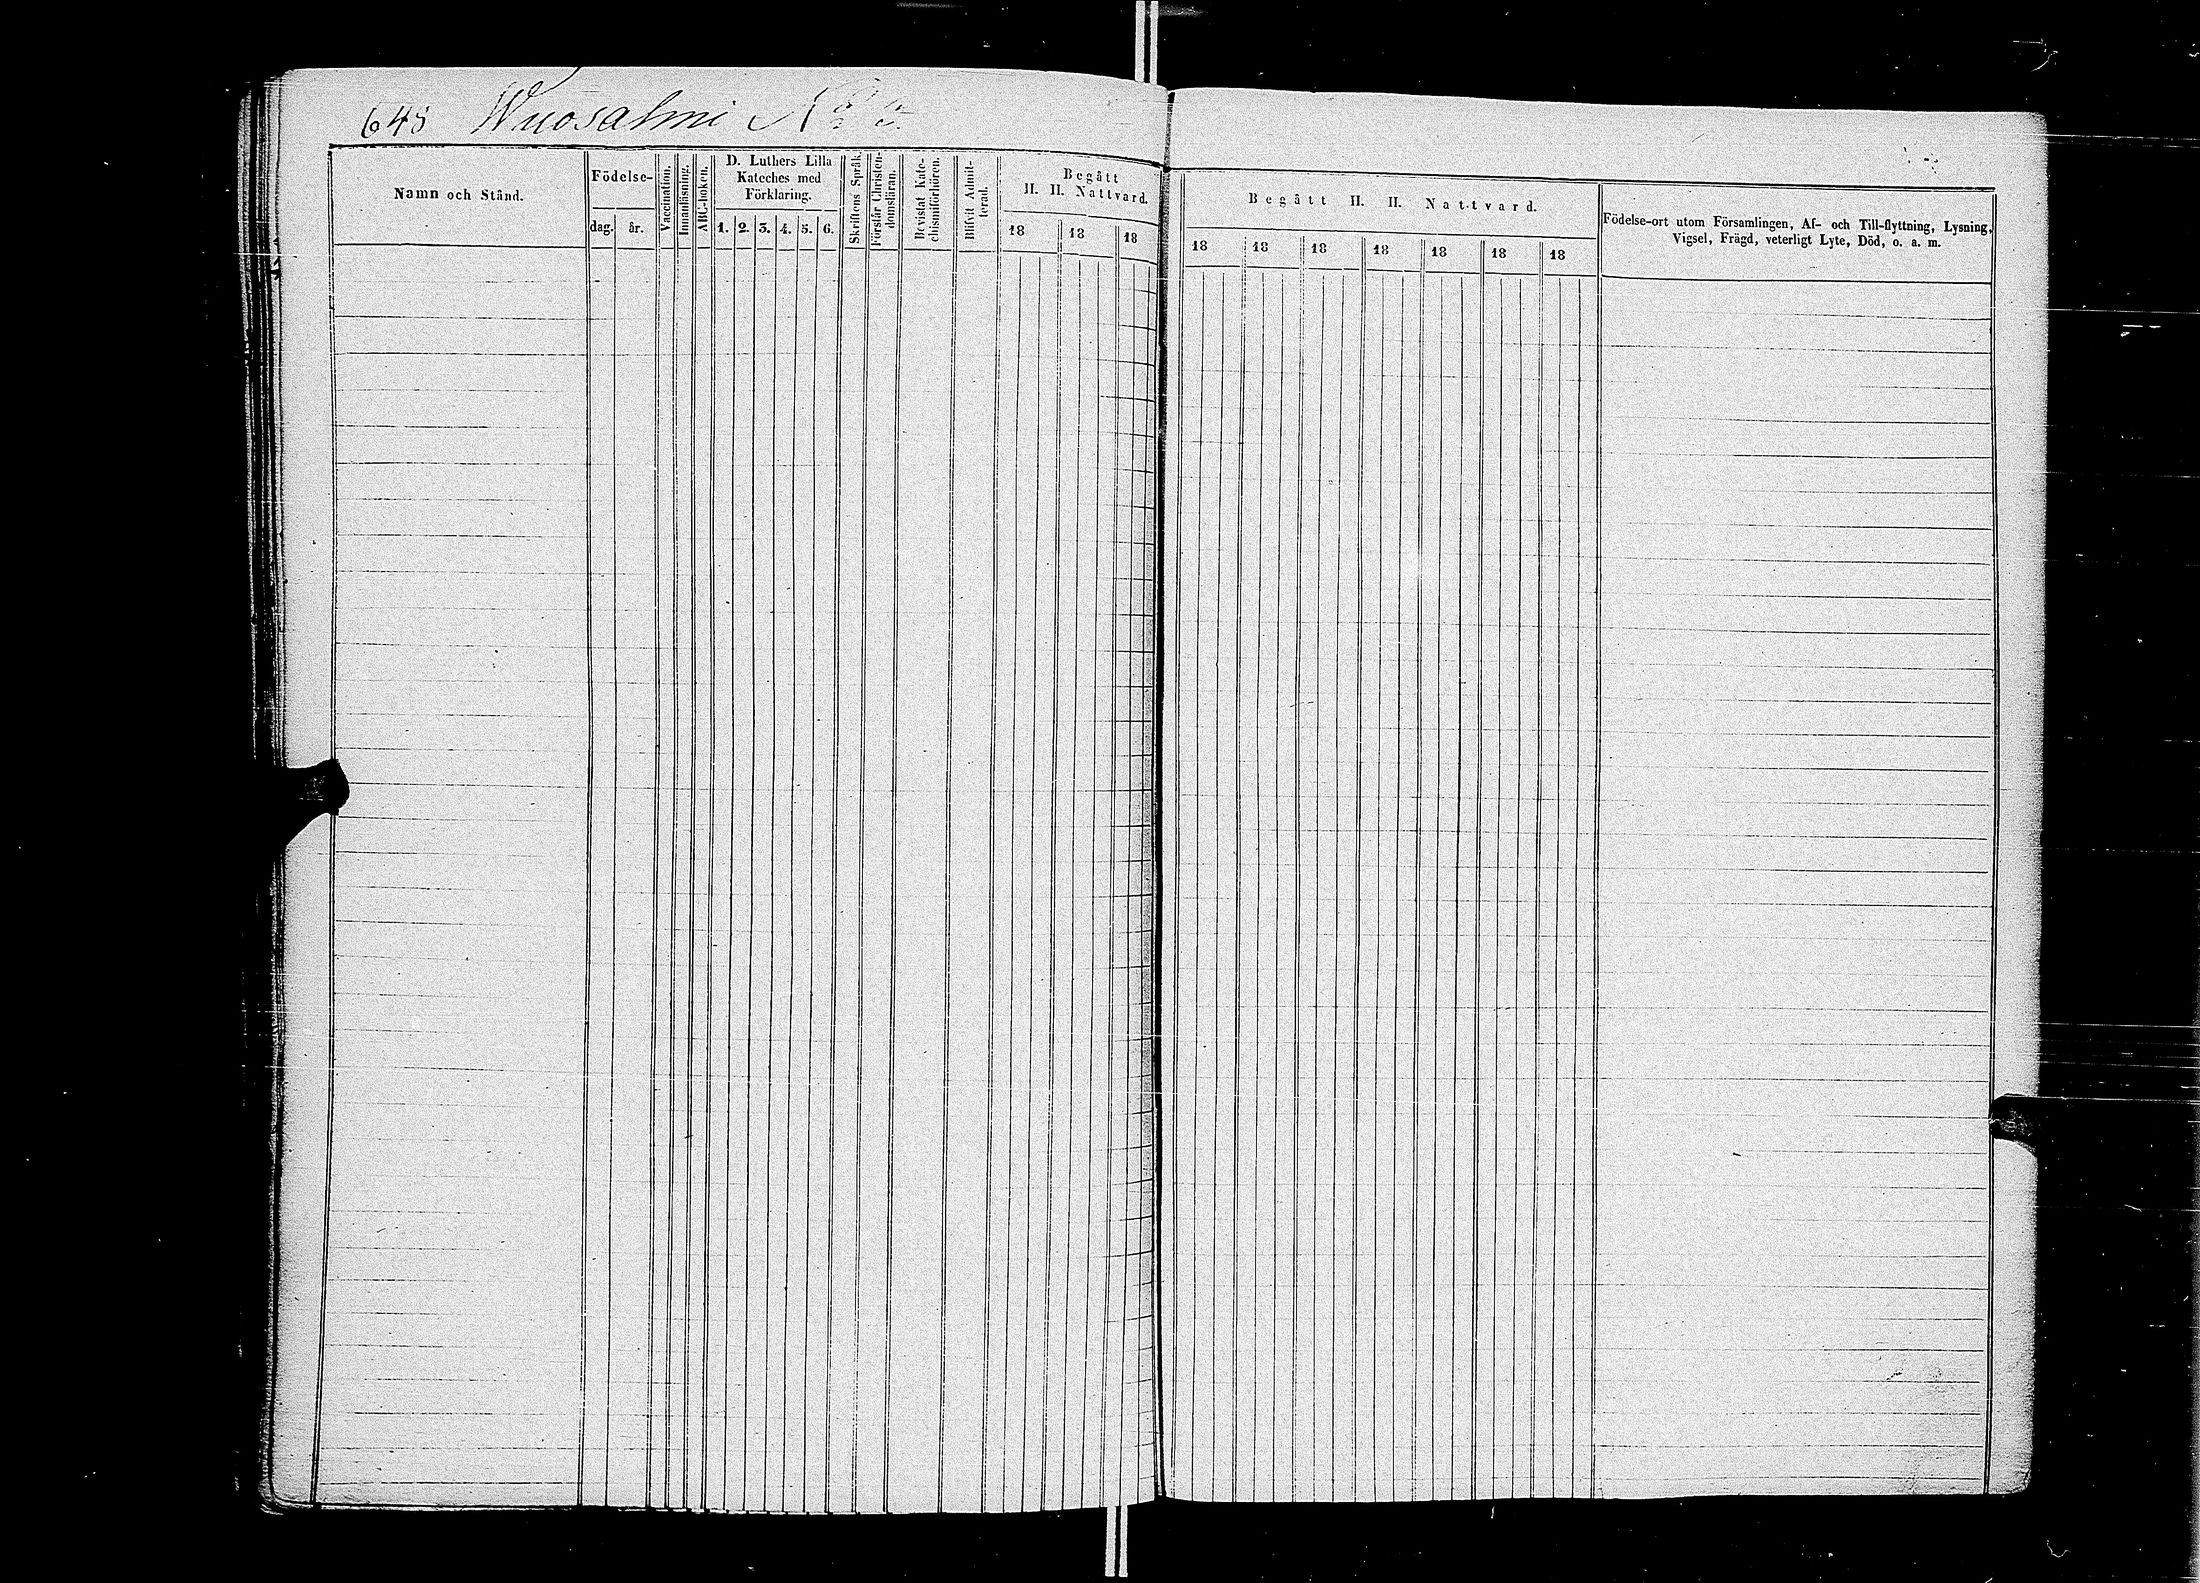 648 Wuosalmi No 5.
Namn och Stånd.
Födelse-
dag. år.
Vaccination.
Innanläsning.
ABC-boken.
D. Luthers Lilla
Kateches med
Förklaring.
1. 2. 3. 4. 5. 6.
Skriftens Språk.
Förstår Christen-
domsläran.
Bevistat Kate-
chismiförhören.
Blifvit Admit-
terad.
Begått
H. H. Nattvard.
18 18 18
Begått H. H. Nattvard.
18 18 18 18 18 18 18
Födelse-ort utom Församlingen, Af- och Till-flyttning, Lysning,
Vigsel, Frägd, veterligt Lyte, Död, o. a. m.